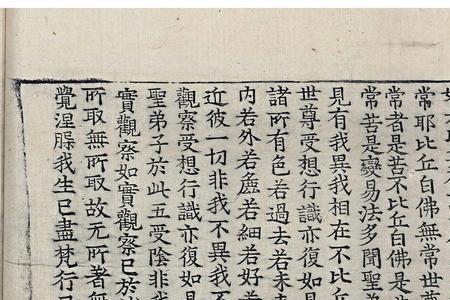 常耶比丘白佛無常世
常者是苦不比丘白佛是
常苦是變易法多聞聖
見有我異我相在不比丘
世尊受想行識亦復如
諸所有色若過去若未
内若外若麁若細若好
近彼一切非我不異我不
觀察受想行識亦復如是
聖弟子於此五受陰非我
實觀察如實觀察已於
所取無所取故无所著無
覺涅槃我生已盡梵行已